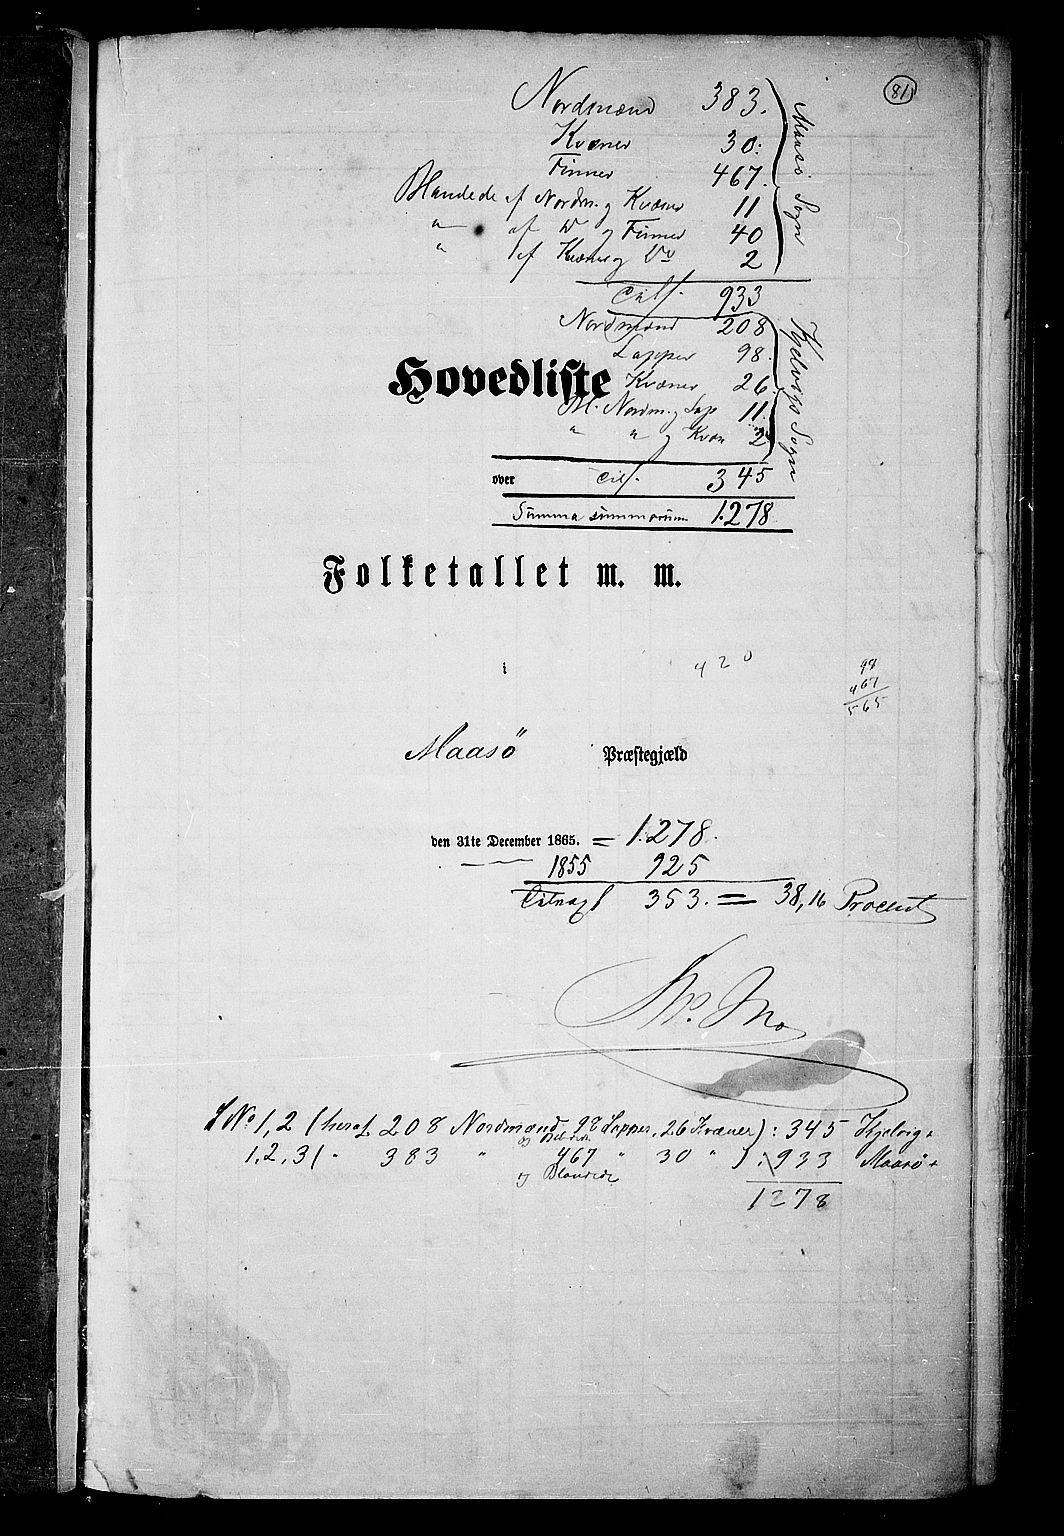 81
Nordmænd 383.
Kvæner 30.
Finner 467.
Blandede af Nordm. og Kvæner 11
" af Do og Finner 40
" af Kvæner og Do 2
Maasø Sogn
Tils. 933
Nordmænd 208
Lapper 98.
Hovedliste
Kvæner 26
Bl. Nordm. og Lap 11.
" " og Kvæn 2
Kjelvigs Sogn
over Tils. 345
Summa summarum 1278
Folketallet m. m.
i 420
98
467
565
Maasö Præstegjæld
den 31te December 1865. = 1.278.
1855 925
353. = 38,16 Procent
No 1, 2 (heraf 208 Nordmænd, 98 Lapper, 26 Kvæner) : 345 Kjelvig
og Blande
1, 2, 3 ( " 383 " 467 " 30 " ) : 933 Maasø
og Blandede
1278